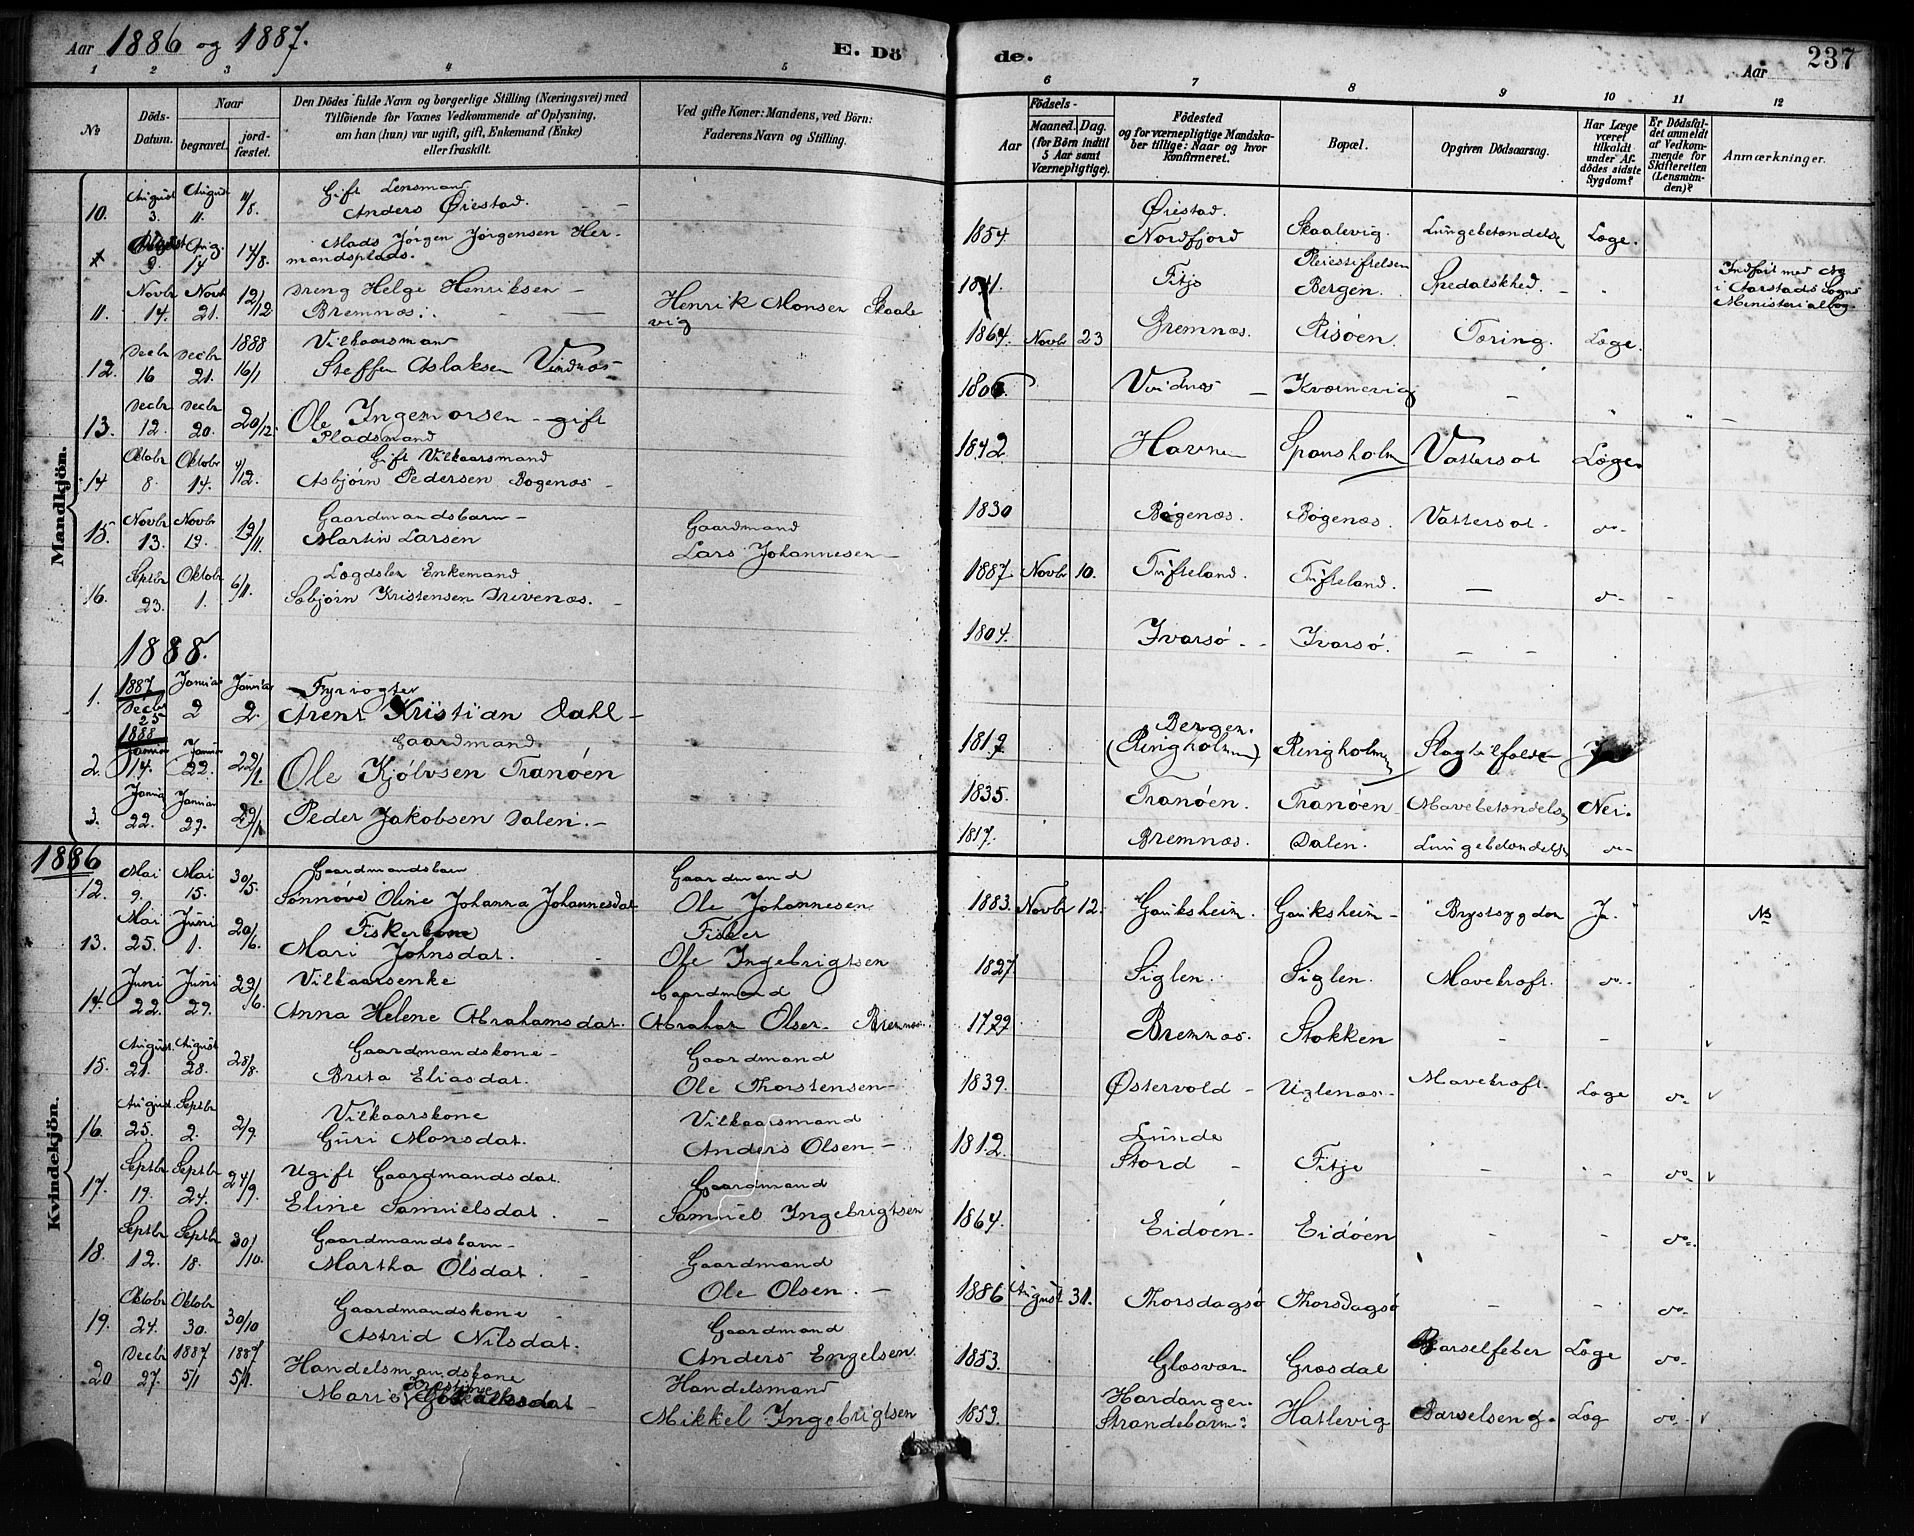 Aar 1886 og 1887. E. Dö de. Aar 237
1 2 3 4 5 6 7 8 9 10 11 12
No Döds-Datum. Naar begravet. jord-fæstet.
Den Dödes fulde Navn og borgerlige Stilling (Næringsvei) med
Tilföiende for Voxnes Vedkommende af Oplysning,
om han (hun) var ugift, gift, Enkemand (Enke)
eller fraskilt.
Ved gifte Koner: Mandens, ved Börn:
Faderens Navn og Stilling.
Födsels-
Aar Maaned. Dag.
(for Börn indtil
5 Aar samt
Værnepligtige).
Födested
og for værnepligtige Mandska-
ber tillige: Naar og hvor
konfirmeret.
Bopæl.
Opgiven Dödsaarsag.
Har Læge
været
tilkaldt
under Af-
dödes sidste
Sygdom?
Er Dödsfal-
det anmeldt
af Vedkom-
mende for
Skifteretten
(Lensman-
den)?
Anmærkninger.
Mandkjön.
10. August 3. August 11. 11/8. Gift Lensmand
Anders Øiestad. 1854. Øiestad. Nordfjord Skaalevig. Lungebetændelse Læge.
9. Aug. 14 14/8. Mads Jörgen Jörgensen Her-
mandsplads. 1841. Fitje Pleiestiftelsen Bergen. Spedalskhed. Indført med No
i Aarstads Sogns
Ministerialbog.
11. Novbr 14. Novb 21. 12/12 Dreng Helge Henriksen
Bremnæs. Henrik Monsen Skaale
vig 1864. Novb 23 Bremnæs. Risøen. Tæring. Læge.
12. Decbr 16 Decbr 21. 1888 16/1 Vilkaarsmand
Steffen Aslaksen Vindnæs Vindnæs Kværnevig
13. Decbr 12. Decbr 20. 20/12. Ole Ingemorsen - gift
Pladsmand 1842 Havn Spansholm Vattersot Læge.
14 Oktobr 8. Oktobr 14. 4/12. Gift Vilkaarsmand
Asbjørn Pedersen Bøgenæs 1830 Bøgenæs. Bøgenæs. Vattersot.
15. Novbr 13. Novbr 19. 19/11. Gaardmandsbarn
Martin Larsen Gaardmand
Lars Johannesen 1887. Novbr 10. Tufteland. Tufteland.
16. Septbr 23. Oktobr 1. 6/11. Lægdslem Enkemand
Sæbjørn Kristensen Drivenæs. 1804. Ivarsø Ivarsø.
1888.
1. 1887 Decbr 25 Januar 2 Januar 2. Fyrvogter
Arent Kristian Dahl 1819 Bergen (Ringholm) Ringholm Slagtilfælde Ja
2. 1888 Januar 14. Januar 22. 22/1. Gaardmand
Ole Kjølvsen Tranøen 1835. Tranøen. Tranøen Mavebetændelse Nei.
3. Januar 22. Januar 29. 29/1 Peder Jakobsen Dalen. 1817. Bremnæs. Dalen. Lungebetændelse
1886
Kvindekjön.
12. Mai 9. Mai 15. 30/5. Gaardmandsbarn
Sønnøve Oline Johanna Johannesdat Gaardmand
Ole Johannesen 1883. Novbr 12. Gauksheim. Gauksheim Brystsygdom Ja
13. Mai 25. Juni 1. 20/6. Fiskerkone
Mari Johnsdat. Fisker
Ole Ingebrigtsen 1827 Siglen. Siglen. Mavekræft.
14. Juni 22. Juni 29. 29/6. Vilkaarsenke
Anna Helene Abrahamsdat. Gaardmand
Abraham Olsen Bremnæs. 1799 Bremnæs. Stokken
15. August 21. August 28. 28/8. Gaardmandskone
Brita Eliasdat. Gaardmand
Ole Thorstensen 1839. Østervold Uglenæs Mavekræft. Læge
16. August 25. Septbr 2. 2/9. Vilkaarskone
Guri Monsdat. Vilkaarsmand
Anders Olsen 1812. Lunde Stord Fitje
17. Septbr 19. Septbr 24. 24/9. Ugift Gaardmandsdat.
Eline Samuelsdat. Gaardmand
Samuel Ingebrigtsen 1864. Eidøen. Eidøen
18. Septbr 12. Septbr 18. 30/10. Gaardmandsbarn
Martha Olsdat. Gaardmand
Ole Olsen. 1886 August 31. Thorsdagsø Thorsdagsø
19. Oktobr 24. Oktobr 30. 30/10 Gaardmandskone
Astrid Nilsdat. Gaardmand
Anders Engelsen 1853. Glæsvær Græsdal Barselfeber Læge
20 Decbr 27. 1887 5/1 1887 5/1. Handelsmandskone
Marie Handelsmand
Mikkel Ingebrigtsen 1853. Hardanger Strandebarm Hatlevig Barselseng Læg